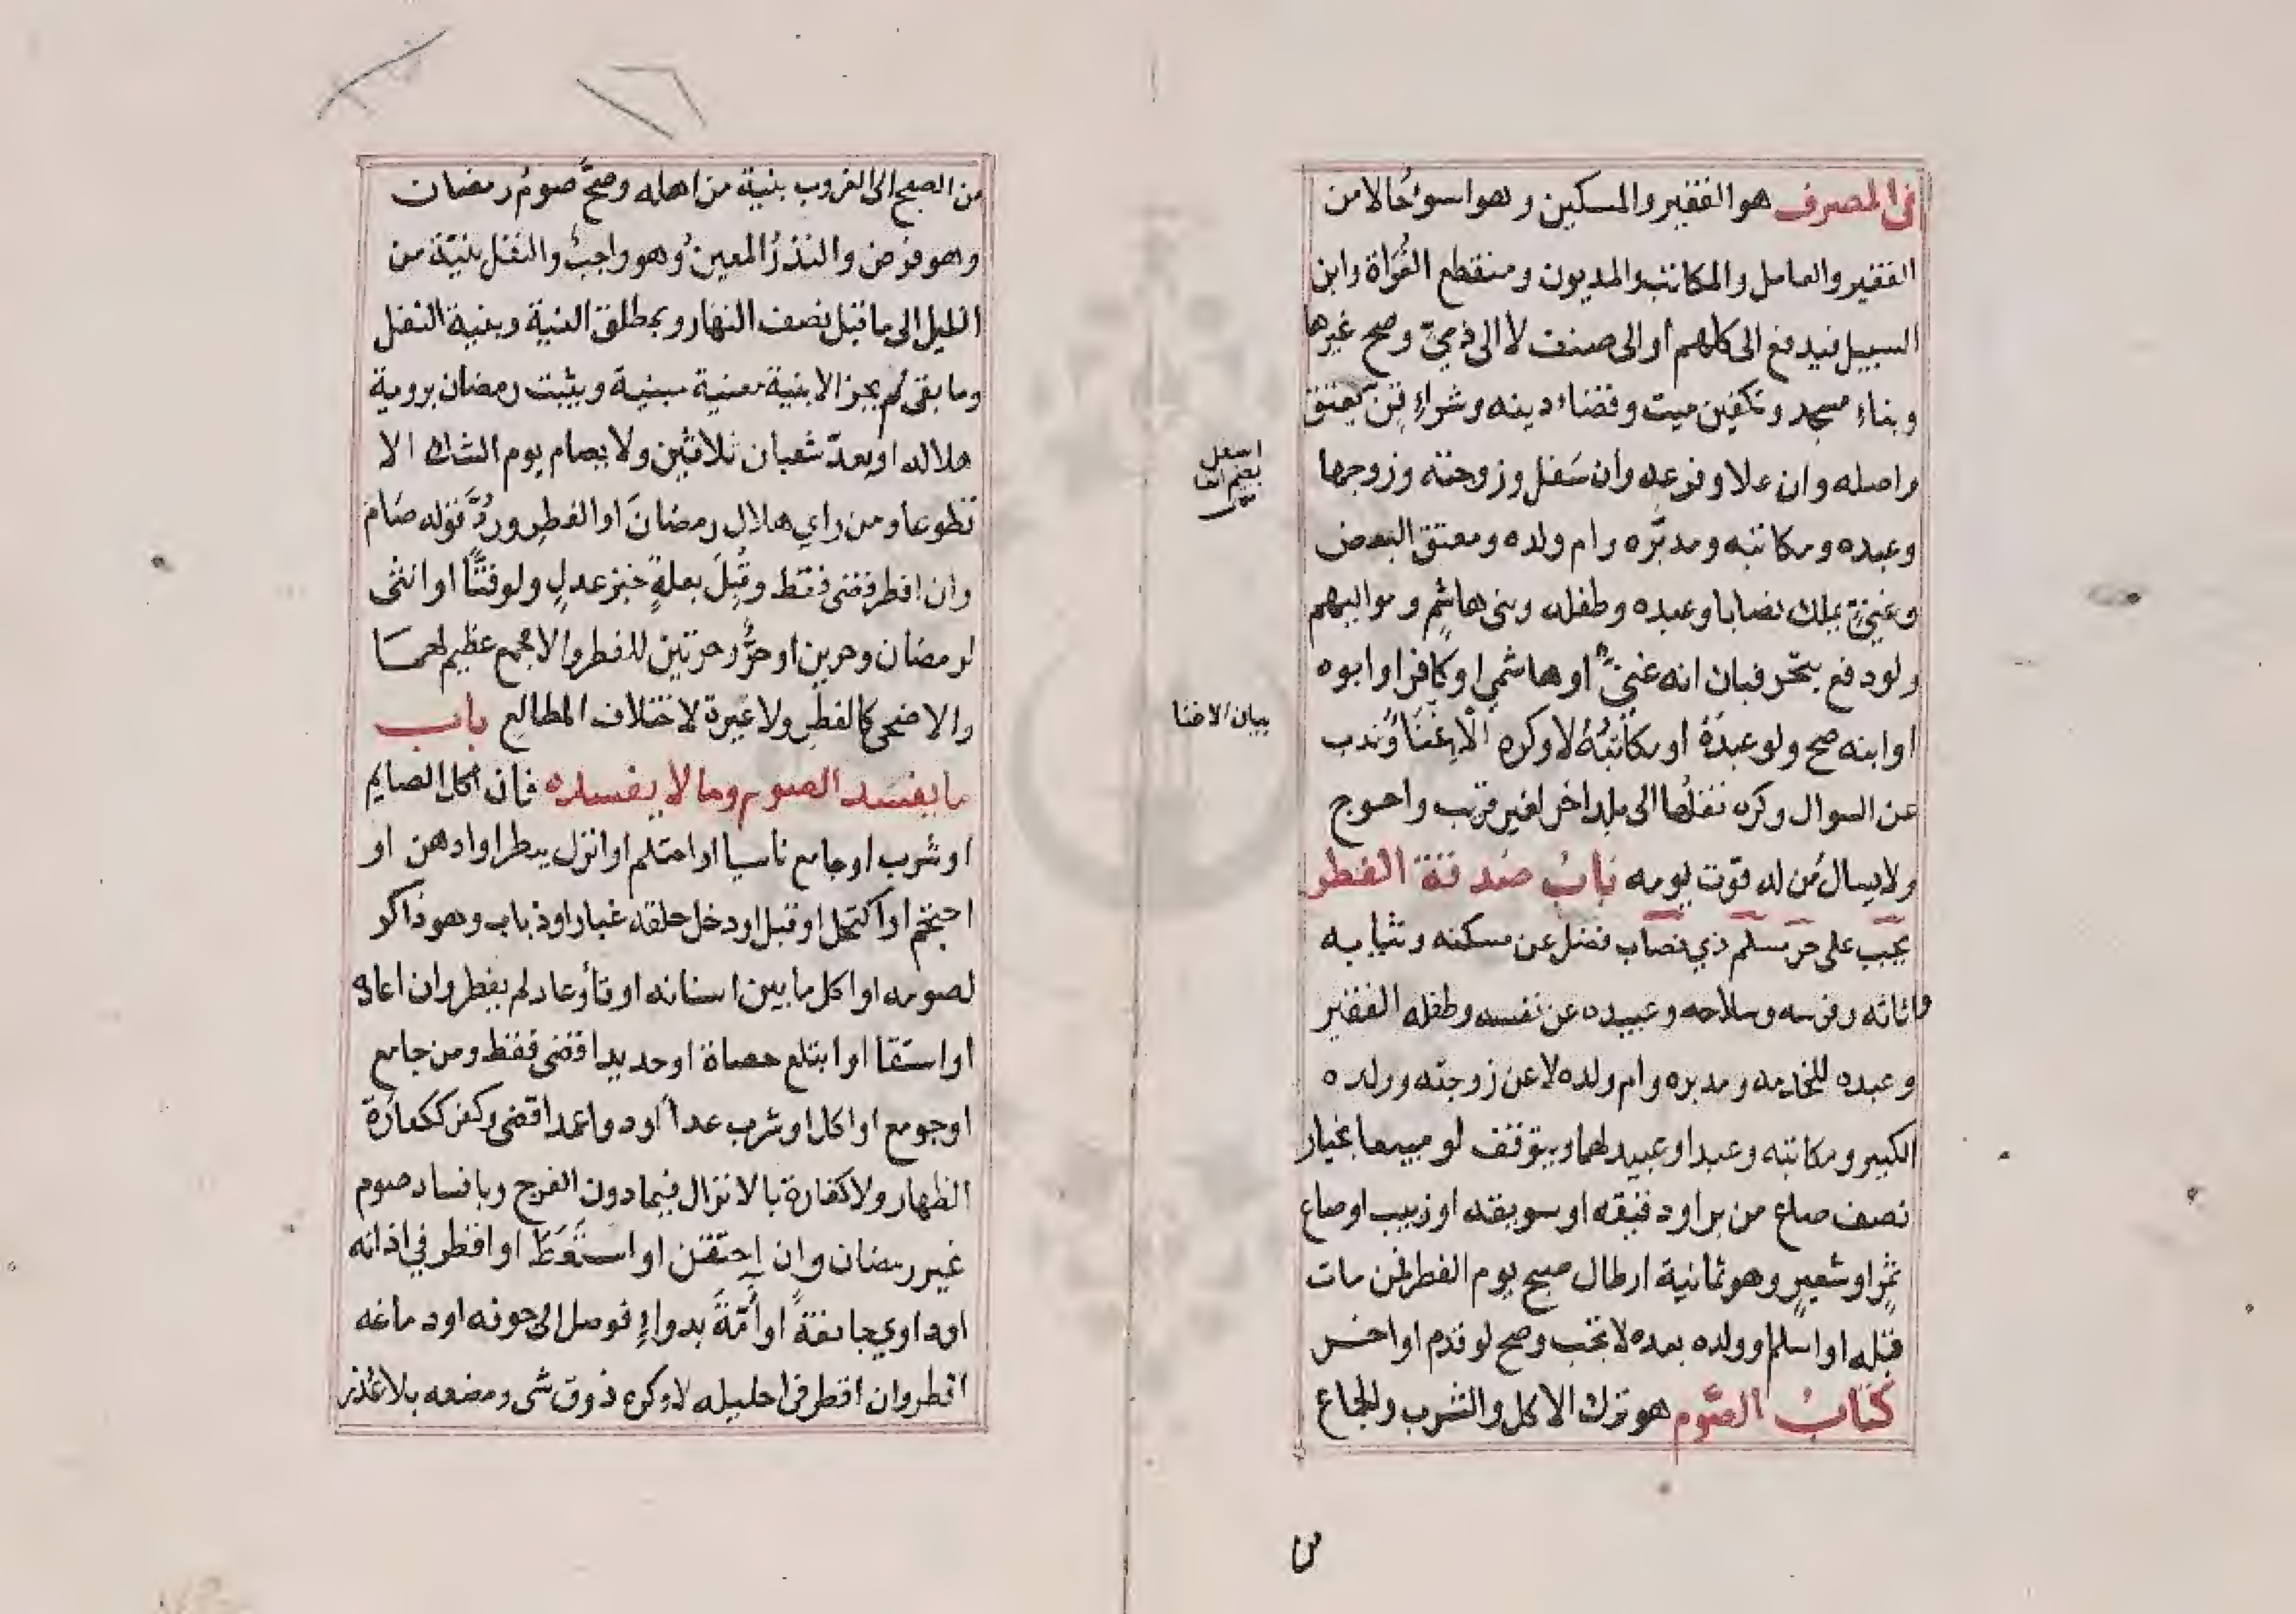 في المصرف هو الفقير والمسكين وهو اسوءُ حَالا من
الفقير والعامل والمكاتب والمديون ومنقطع الغُزاة وابن
السبيل فيدفع الى كلهم او الى صنف لا الى ذميّ وصح غيرها
وبناء مسجد وتكفين ميت وقضاء دينه وشراءِ قنّ يعتق
واصله وان علا وفرعه وان سَفل وزوجته وزوجها
وعبده ومكاتبه ومدبّره وام ولده ومعتق البعض
وغنيّ بملك نصابا وعبده وطفله وبنى هاشمٍ ومواليهم
ولو دفع بتحر فبان انه غنيٌّ او هاشمي او كافر او ابوه
او ابنه صح ولو عبدَهُ او مكاتبُهُ لا وكره الاِغْنَا وَندب
عن السوال وكره نقلُها الى بلد اخر لغير قريب واحوج
ولا يسال مَن له قوت يومه بابُ صَدقة الفطر
يجب على حر مسلم ذي نصاب فضل عن مسكنه وثيابه
واثاثه وفرسه وسلاحه وعبيده عن نفسه وطفله الفقير
وعبده للخدمه ومدبره وام ولده لا عن زوجته وولده
الكبير ومكاتبه وعبد او عبيد لهما ويتوقف لو مبيعا بخيار
نصف صاع من بر او دقيقه او سويقه او زبيب او صاع
تمرٍ او شعيرٍ وهو ثمانية ارطال صبح يوم الفطر لمن مات
قبله او اسلم او ولده بعده لا تجب وصح لو قدم او اخر
كتابُ الصَّوم هو ترك الاكل والشرب والجماع
بيان الاغنا
من
من الصبح الى الغروب بنية من اهله وصحَّ صومُ رمضان
وهو فرض والنذرُ المعينُ وهو واجبٌ والنفل بنيّة من
الليل الى ما قبل نصف النهار وبمطلق النية وبنية النفل
وما بقى لم يجز الا بنية معنية مبنية ويثبت رمضان بروية
هلاله او بعدّ شعبان ثلاثين ولا يصام يوم الشك الا
تطوعا ومن راي هلال رمضانَ او الفطرِ ورُدَّ قوله صَام
وان افطر قضى فقط وقُبِلَ بعلةٍ خبر عدلٍ ولو قنًّا او انثى
لرمضان وحرين او حرٌّ وحرتين للفطر والا فجمع عظيم لهمَا
والاضحى كالفطرِ ولا عبرة لاختلاف المطالع باب
ما يفسد الصوم وما لا يفسده فان اكل الصايم
او شرب او جامع ناسيا او احتلم او انزل بنظر او ادهن او
احتجم او اكتحل او قبل او دخل حلقه غبار او ذباب وهو ذاكر
لصومه او اكل ما بين اسنانه او قاء وعاد لم يفطر وان اعاده
او استقا او ابتلع حصاة او حديدا قضى فقط ومن جامع
او جومع او اكل او شرب عمداً او دواء عمدا قضى وكفر ككفارة
الظهار ولا كفارة بالانزال فيما دون الفرج وبافساد صوم
غير رمضان وان احتقن او استعَطَ او اقطر في اذانه
او داوي جائفةً او أمّةً بدواءٍ فوصل الى جوفه او دماغه
افطر وان اقطر في احليله لا وكره ذوق شى ومضغه بلا عُذر